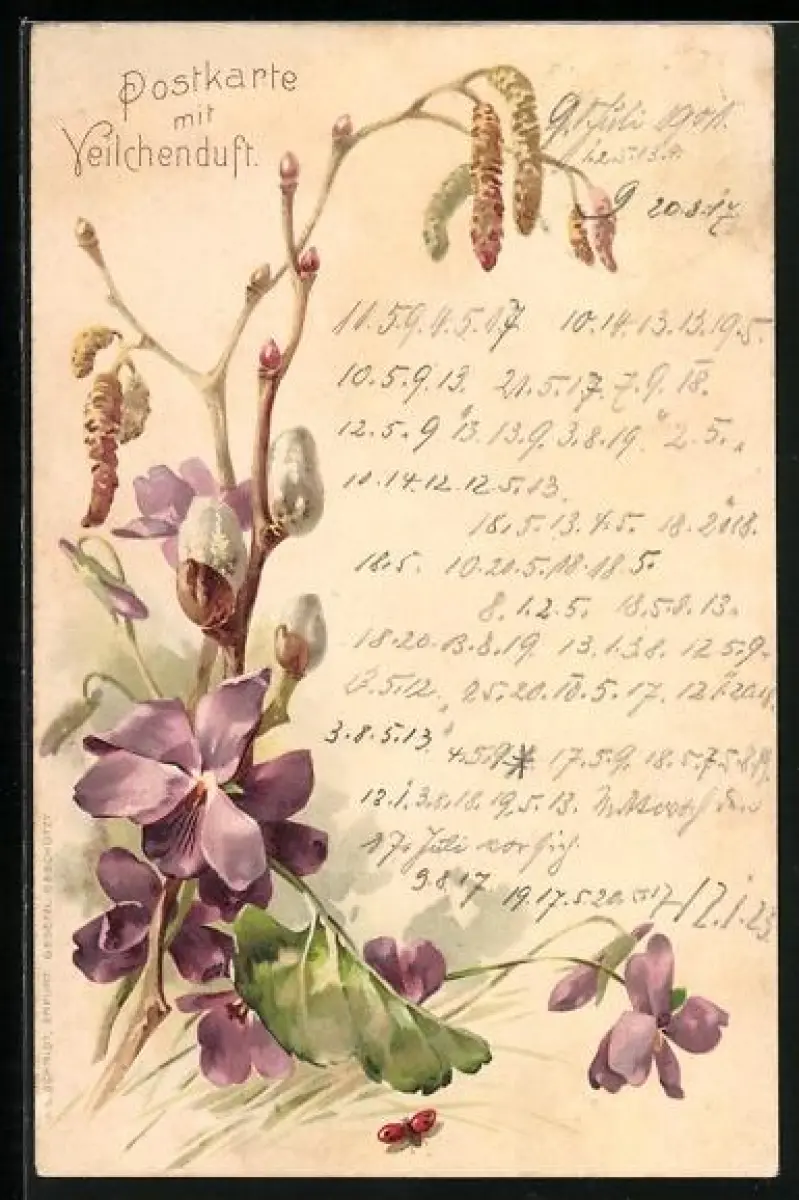 Postkarte
mit
Veilchenduft.
9. Juli 1901.
9 20.8.17
11.5.9.4.5.17 10.14.13.13.19.5.
10.5.9.13. 21.5.17.7.9.18.
12.5.9 13.13.9.3.8.19. 2.5.
11.14.12.12.5.13.
18.5.13.4.5. 18.20.18.
18.5. 10.20.5.18.18.5.
8.1.2.5. 18.5.8.13.
18.20.13.8.19. 13.1.3.8. 12.5.9.
13.5.12. 25.20.10.5.17.
3.8.5.13.
4.5.9. 17.5.9. 18.5.7.5.8.19.
12.1.3.8.18.19.5.13. Mittwoch den
17. Juli
9.8.17 19.17.5.20.5.17 / 12.1.23.
SCHMIDT, ERFURT. GESETZL. GESCHÜTZT